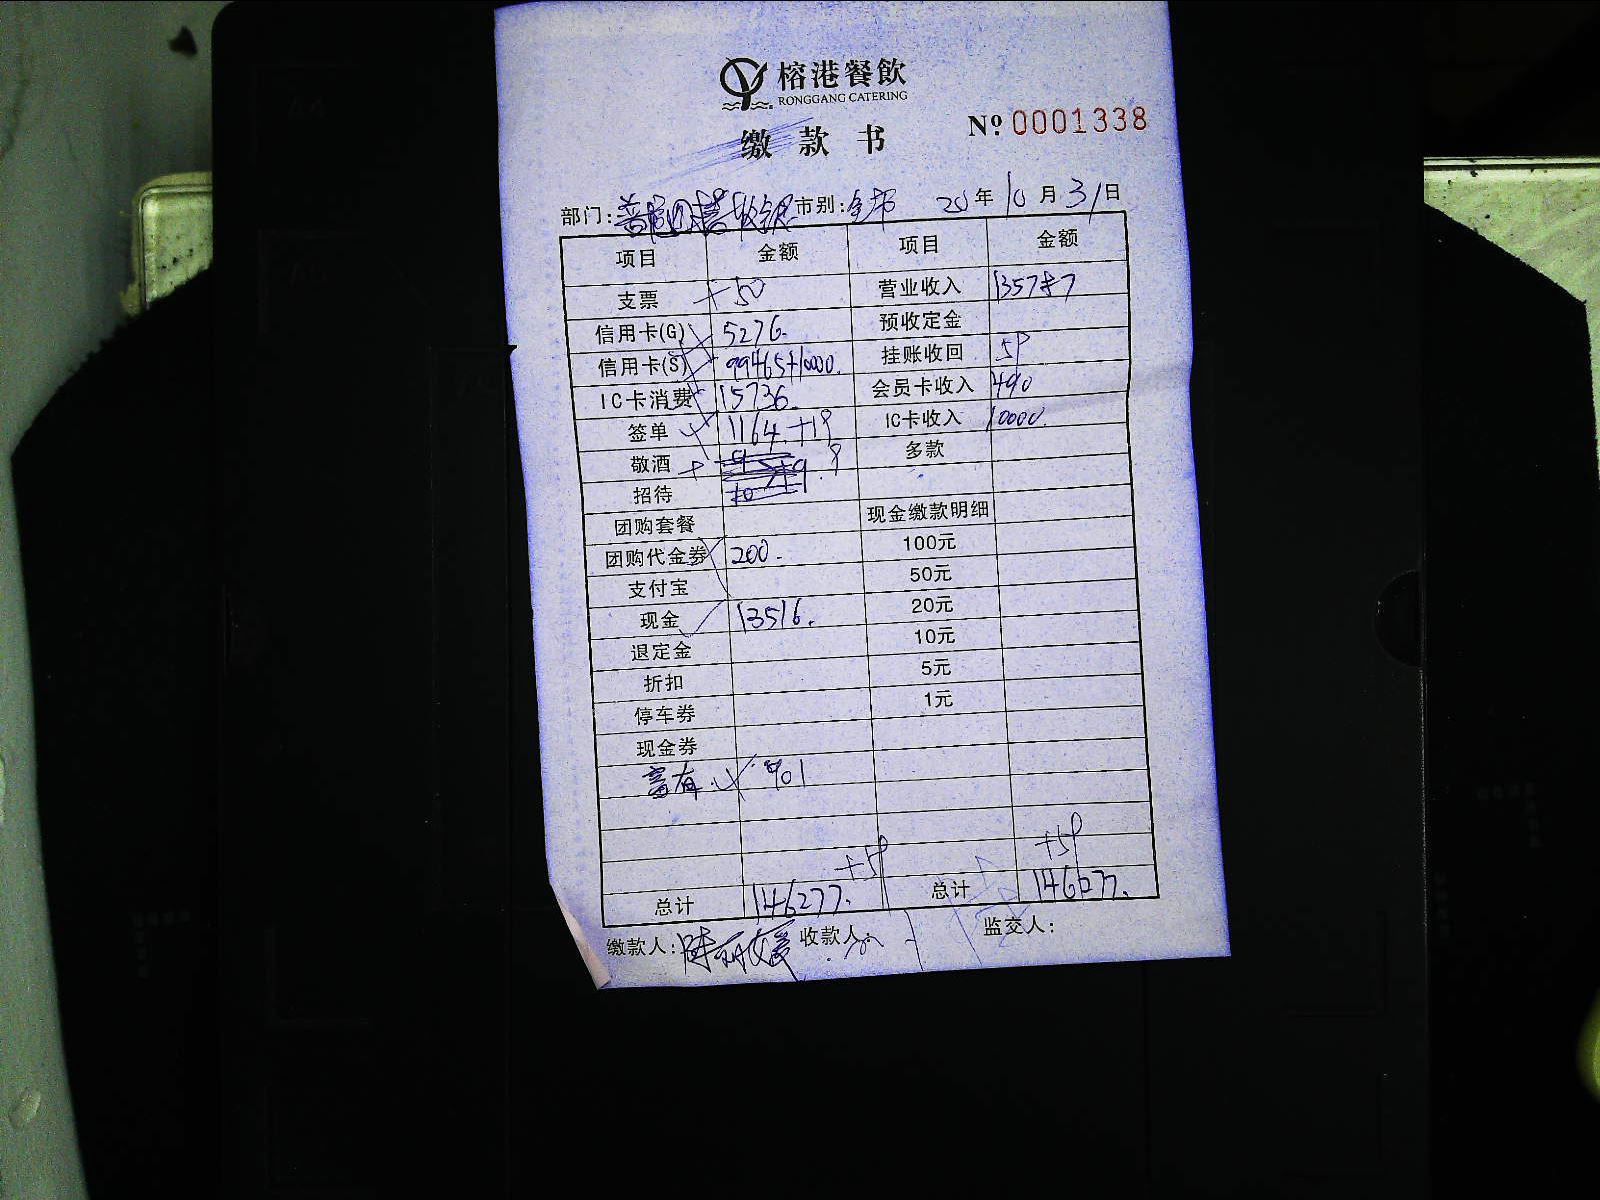 榕港餐飲
RONGGANG CATERING
№ 0001338
缴款书
部门: 收银 市别: 全市 20年10月31日
项目 金额 项目 金额
支票 +50 营业收入 135787
信用卡(G) 5276. 预收定金
信用卡(S) 99465+10000. 挂账收回 59
IC卡消费 15736. 会员卡收入 490
签单 1164.+19 IC卡收入 10000.
敬酒 多款
招待
团购套餐 现金缴款明细
团购代金券 200. 100元
支付宝 50元
现金 13516. 20元
退定金 10元
折扣 5元
停车券 1元
现金券
901
+59 +59
总计 146277. 总计 146277.
缴款人: 陆 媛 收款人: 监交人: